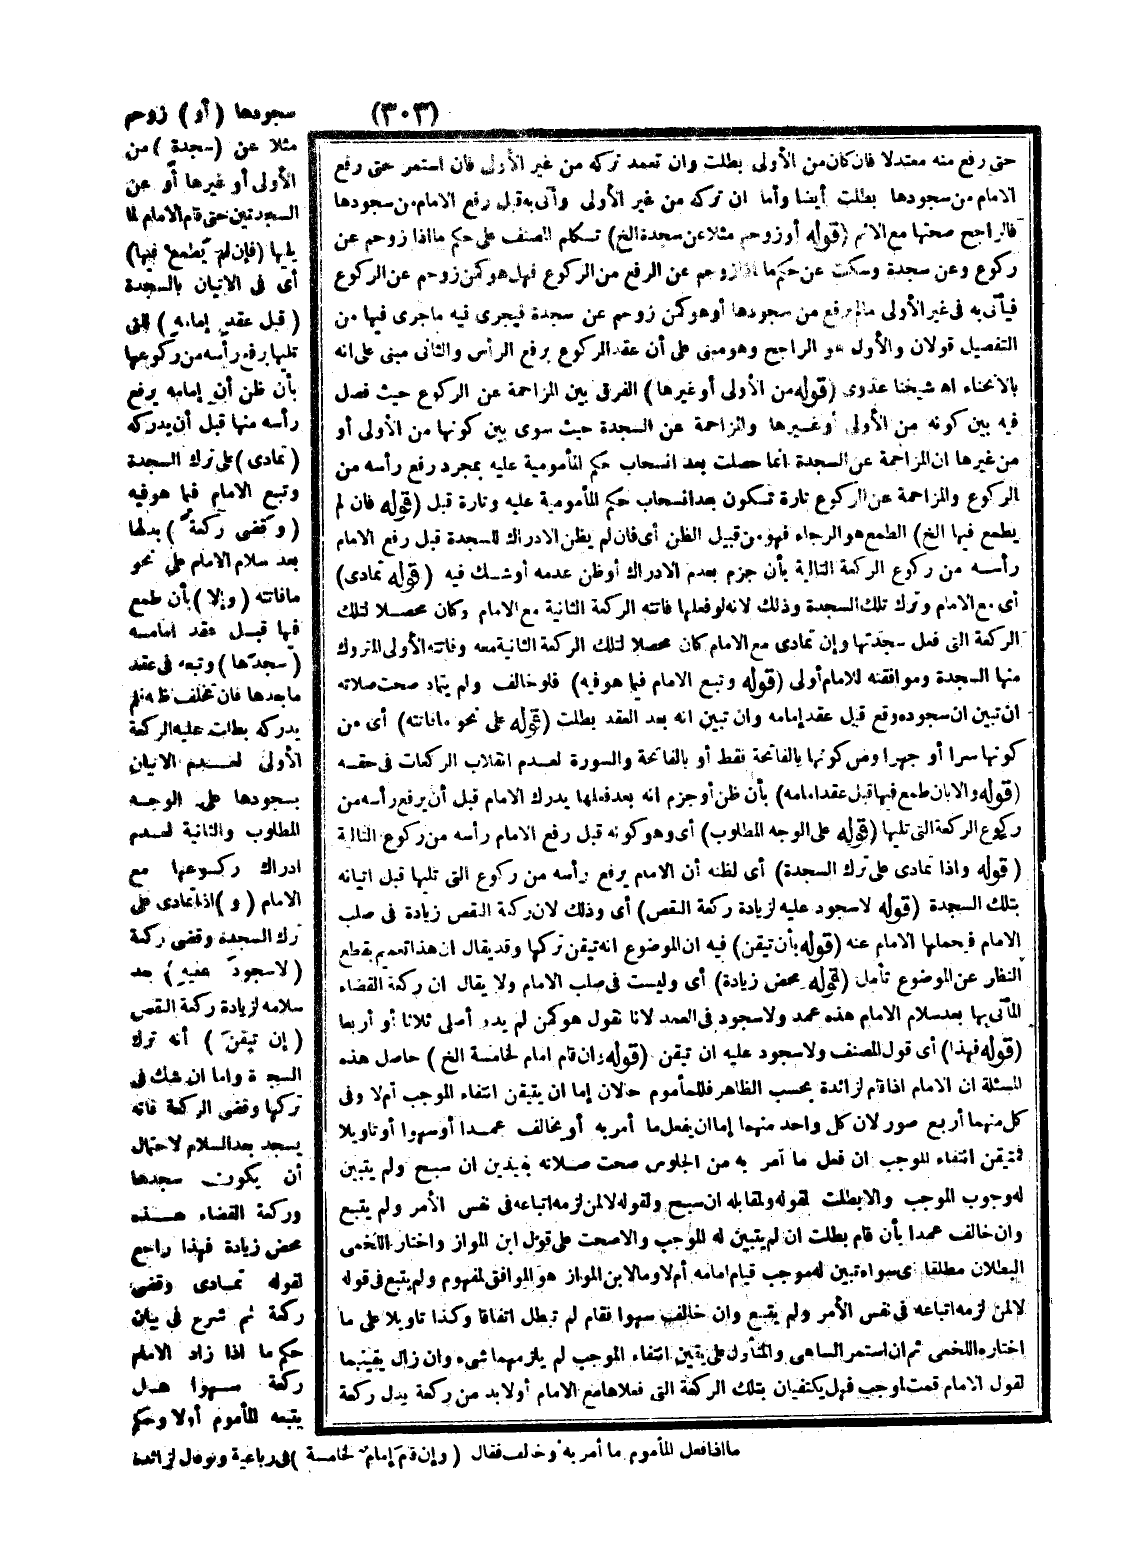 (٣٠٣)
حتى رفع منه معتدلا فان كان من الأولى بطلت وان تعمد تركه من غير الأولى فان استمر حتى رفع
الامام من سجودها بطلت أيضا وأما ان تركه من غير الأولى وأتى به قبل رفع الامام من سجودها
فالراجح صحتها مع الاثم (قوله أو زوحم مثلا عن سجدة الخ) تكلم المصنف على حكم ما اذا زوحم عن
ركوع وعن سجدة وسكت عن حكم ما اذا زوحم عن الرفع من الركوع فهل هو كمن زوحم عن الركوع
فيأتى به فى غير الأولى مالم يرفع من سجودها أو هو كمن زوحم عن سجدة فيجرى فيه ماجرى فيها من
التفصيل قولان والأول هو الراجح وهو مبنى على أن عقد الركوع برفع الرأس والثانى مبنى على انه
بالانحناء اه شيخنا عدوى (قوله من الأولى أو غيرها) الفرق بين المزاحمة عن الركوع حيث فصل
فيه بين كونه من الأولى أو غيرها والمزاحمة عن السجدة حيث سوى بين كونها من الأولى أو
من غيرها ان المزاحمة عن السجدة انما حصلت بعد انسحاب حكم المأمومية عليه بمجرد رفع رأسه من
الركوع والمزاحمة عن الركوع تارة تكون بعد انسحاب حكم المأمومية عليه وتارة قبل (قوله فان لم
يطمع فيها الخ) الطمع هو الرجاء فهو من قبيل الظن أى فان لم يظن الادراك للسجدة قبل رفع الامام
رأسه من ركوع الركعة التالية بأن جزم بعدم الادراك أو ظن عدمه أو شك فيه (قوله تمادى)
أى مع الامام وترك تلك السجدة وذلك لانه لو فعلها فاتته الركعة الثانية مع الامام وكان محصلا لتلك
الركعة التى فعل سجدتها وإن تمادى مع الامام كان محصلا لتلك الركعة الثانية معه وفاتته الأولى المتروك
منها السجدة وموافقته للامام أولى (قوله وتبع الامام فيما هو فيه) فلو خالف ولم يتماد صحت صلاته
ان تبين ان سجوده وقع قبل عقد إمامه وان تبين انه بعد العقد بطلت (قوله على نحو مافاتته) أى من
كونها سرا أو جهرا ومن كونها بالفاتحة فقط أو بالفاتحة والسورة لعدم انقلاب الركعات فى حقه
(قوله والا بان طمع فيها قبل عقد امامه) بأن ظن أو جزم انه بعد فعلها يدرك الامام قبل أن يرفع رأسه من
ركوع الركعة التى تليها (قوله على الوجه المطلوب) أى وهو كونه قبل رفع الامام رأسه من ركوع التالية
(قوله واذا تمادى على ترك السجدة) أى لظنه أن الامام يرفع رأسه من ركوع التى تليها قبل اتيانه
بتلك السجدة (قوله لاسجود عليه لزيادة ركعة النقص) أى وذلك لان ركعة النقص زيادة فى صلب
الامام فيحملها الامام عنه (قوله بأن تيقن) فيه ان الموضوع انه تيقن تركها وقد يقال ان هذا تعميم بقطع
النظر عن الموضوع تأمل (قوله محض زيادة) أى وليست فى صلب الامام ولا يقال ان ركعة القضاء
المأتى بها بعد سلام الامام هذه عمد ولاسجود فى العمد لانا نقول هو كمن لم يدر أصلى ثلاثا أو أربعا
(قوله فهذا) أى قول المصنف ولاسجود عليه ان تيقن (قوله وان قام امام لخامسة الخ) حاصل هذه
المسئلة ان الامام اذا قام لزائدة بحسب الظاهر فللمأموم حالان إما ان يتيقن انتفاء الموجب أم لا وفى
كل منهما أربع صور لان كل واحد منهما إما ان يفعل ما أمر به أو يخالف عمدا أو سهوا أو تاويلا
فمتيقن انتفاء الموجب ان فعل ما أمر به من الجلوس صحت صلاته بقيدين ان سبح ولم يتبين
له وجوب الموجب والا بطلت لقوله ولمقابله ان سبح ولقوله لا لمن لزمه اتباعه فى نفس الأمر ولم يتبع
وان خالف عمدا بأن قام بطلت ان لم يتبين له الموجب والا صحت على قول ابن المواز واختار اللخمى
البطلان مطلقا أى سواء تبين له موجب قيام امامه أم لا وما لابن المواز هو الموافق لمفهوم ولم يتبع فى قوله
لا لمن لزمه اتباعه فى نفس الأمر ولم يتبع وان خالف سهوا فقام لم تبطل اتفاقا وكذا تاويلا على ما
اختاره اللخمى ثم ان استمر الساهى والمتأول على يقين انتفاء الموجب لم يلزمهما شىء وان زال يقينهما
لقول الامام قمت لموجب فهل يكتفيان بتلك الركعة التى فعلاها مع الامام أو لا بد من ركعة بدل ركعة
سجودها (أو) زوحم
مثلا عن (سجدة) من
الأولى أو غيرها أو عن
السجدتين حتى قام الامام لما
يليها (فإن لم يطمع فيها)
أى فى الاتيان بالسجدة
(قبل عقد إمامه) التى
تليها برفع رأسه من ركوعها
بأن ظن أن إمامه يرفع
رأسه منها قبل أن يدركه
(تمادى) على ترك السجدة
وتبع الامام فيما هو فيه
(وقضى ركعة) بدلها
بعد سلام الامام على نحو
مافاتته (وإلا) بأن طمع
فيها قبل عقد امامه
(سجدها) وتبعه فى عقد
ما بعدها فان تخلف ظنه فلم
يدركه بطلت عليه الركعة
الأولى لعدم الاتيان
بسجودها على الوجه
المطلوب والثانية لعدم
ادراك ركوعها مع
الامام (و) اذا تمادى على
ترك السجدة وقضى ركعة
(لاسجود عليه) بعد
سلامه لزيادة ركعة النقص
(إن تيقن) أنه ترك
السجدة واما ان شك فى
تركها وقضى الركعة فانه
يسجد بعد السلام لاحتمال
أن يكون سجدها
وركعة القضاء هذه
محض زيادة فهذا راجع
لقوله تمادى وقضى
ركعة ثم شرع فى بيان
حكم ما اذا زاد الامام
ركعة سهوا هل
يتبعه المأموم أولا وحكم
ما اذا فعل المأموم ما أمر به وخالف فقال (وإن قام إمام لخامسة) فى رباعية ونوفال لزائدة